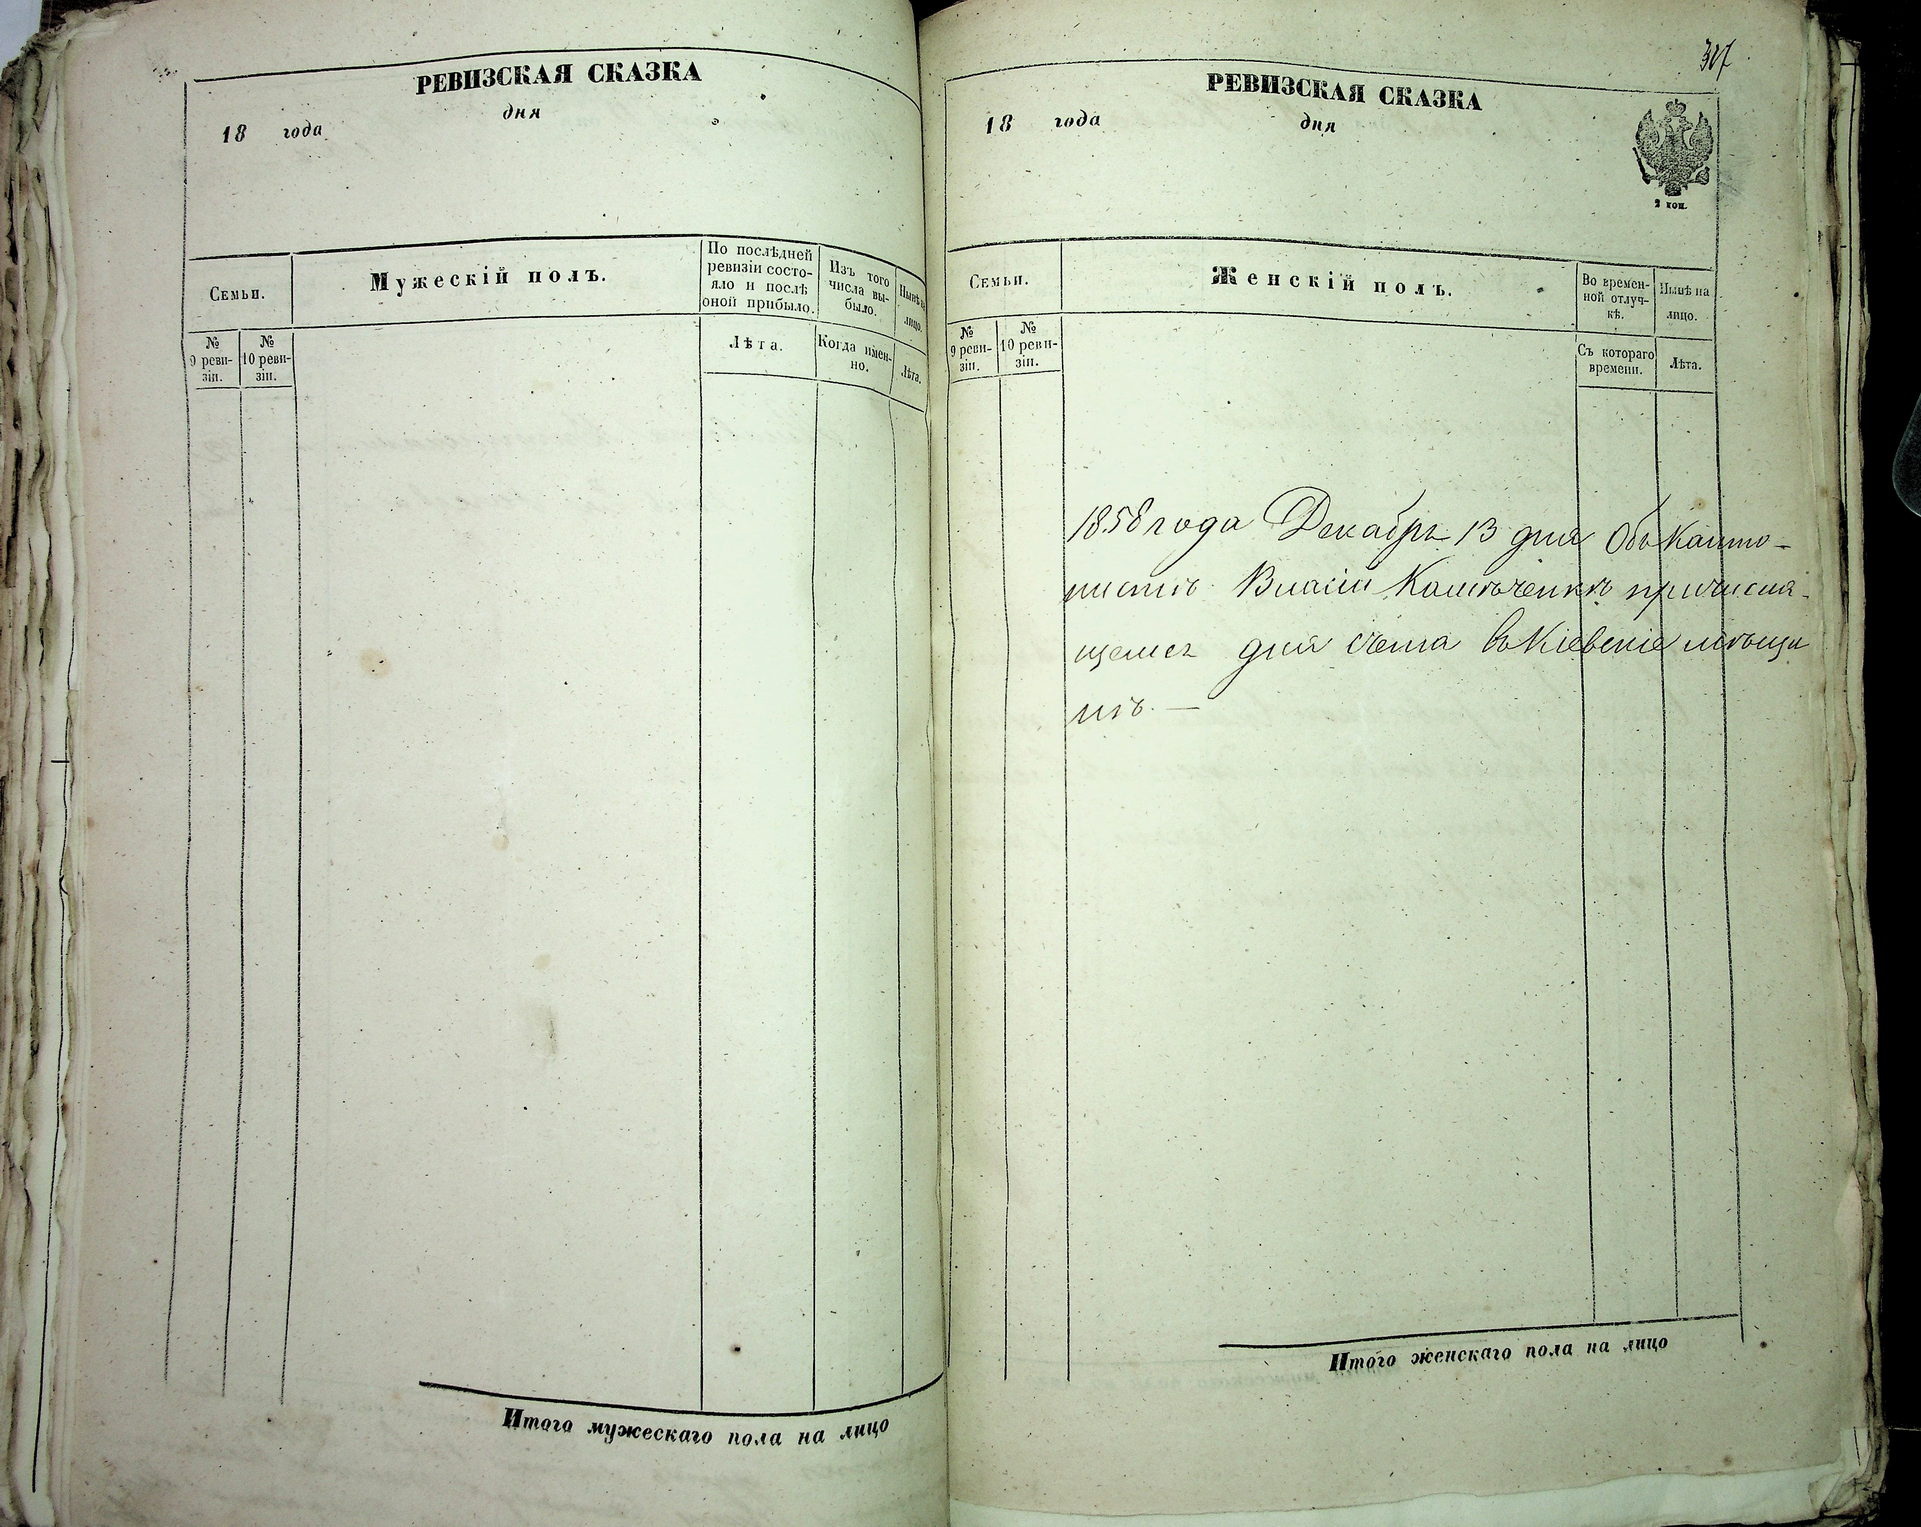 РЕВИЗСКАЯ СКАЗКА
18 года дня
Семьи.
Мужескій полъ.
По послѣдней
ревизіи состо-
яло и послѣ
оной прибыло.
Изъ того
числа вы-
было.
Нынѣ на
лицо.
№
9 реви-
зіи.
№
10 реви-
зіи.
Лѣта.
Когда имен-
но.
Лѣта.
Итого мужескаго пола на лицо
РЕВИЗСКАЯ СКАЗКА
18 года дня
2 коп.
Семьи.
Женскій полъ.
Во времен-
ной отлуч-
кѣ.
Нынѣ на
лицо.
№
9 реви-
зіи.
№
10 реви-
зіи.
Съ котораго
времени.
Лѣта.
1858 года Декабрь 13 дня Объ Канто-
нистѣ Власіи причисля-
щемся для счета въ Кіевскіе мѣща
нѣ. —
Итого женскаго пола на лицо